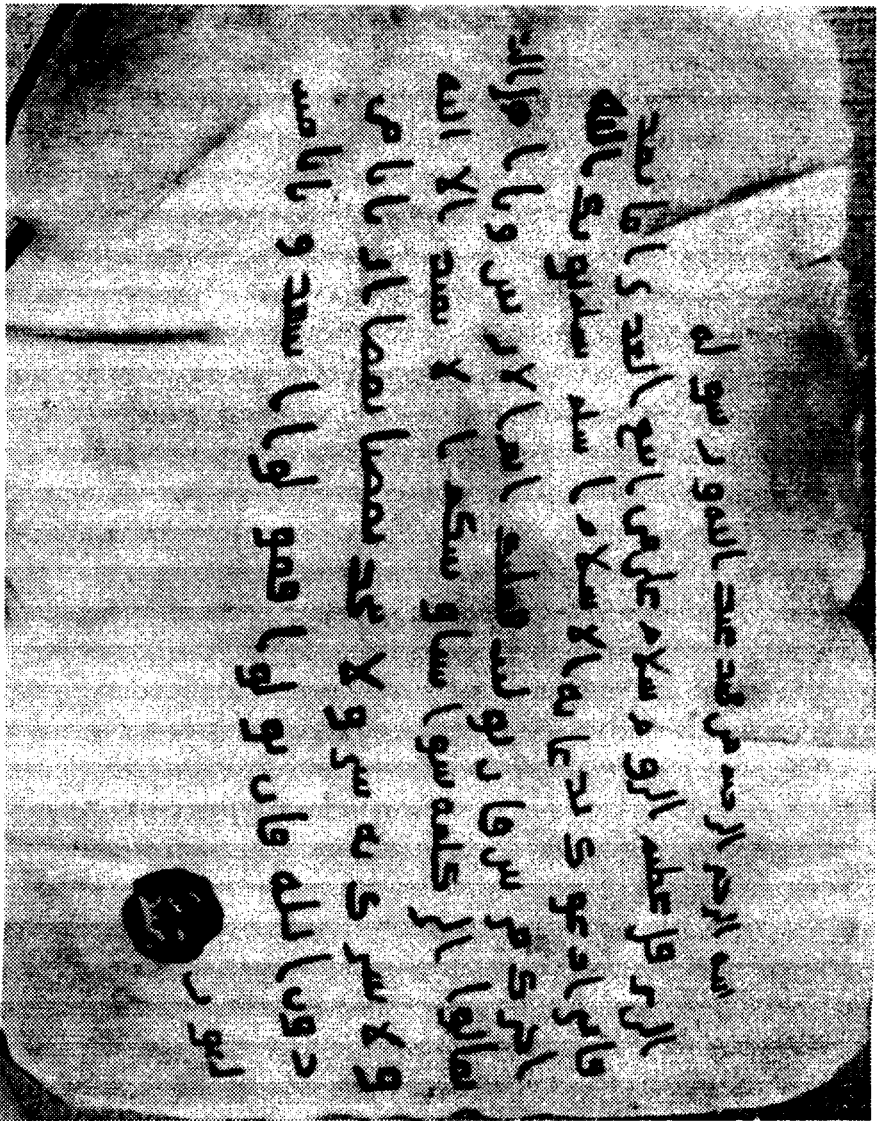 الله الرحمن الرحيم من محمد عبد الله ورسوله
الى هرقل عظيم الروم سلام على من اتبع الهدى اما بعد
فانى ادعوك بدعاية الاسلام اسلم تسلم يوتك الله
اجرك مرتين فان توليت فعليك اثم الاريسين ويا اهل الكتاب
تعالوا الى كلمة سوا بيننا وبينكم الا نعبد الا الله
ولا نشرك به شيا ولا يتخذ بعضنا بعضا اربابا من
دون الله فان تولوا فقولوا اشهدوا بانا مسلمون